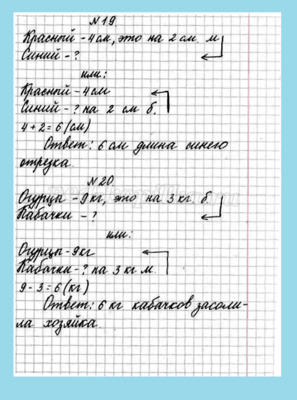 №19
Красный - 4 см, это на 2 см. м
Синий - ?
или:
Красный - 4 см
Синий - ? на 2 см б.
4 + 2 = 6 (см)
Ответ: 6 см длина синего
отрезка.
№20
Огурцы - 9 кг, это на 3 кг. б.
Кабачки - ?
или:
Огурцы - 9 кг
Кабачки - ? на 3 кг м.
9 - 3 = 6 (кг)
Ответ: 6 кг кабачков засоли-
ла хозяйка.